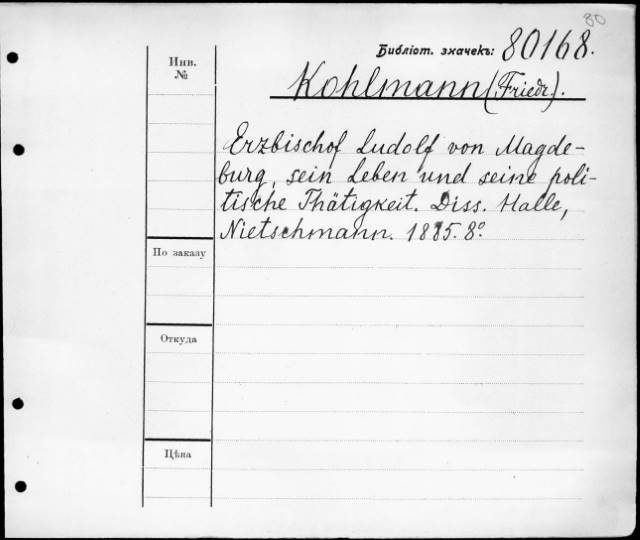 80
Библіот. значекъ: 80168.
Инв. №
Kohlmann (Friedr.).
Erzbischof Ludolf von Magde-
burg, sein Leben und seine poli-
tische Thätigkeit. Diss. Halle,
Nietschmann. 1885. 8º
По заказу
Откуда
Цѣна